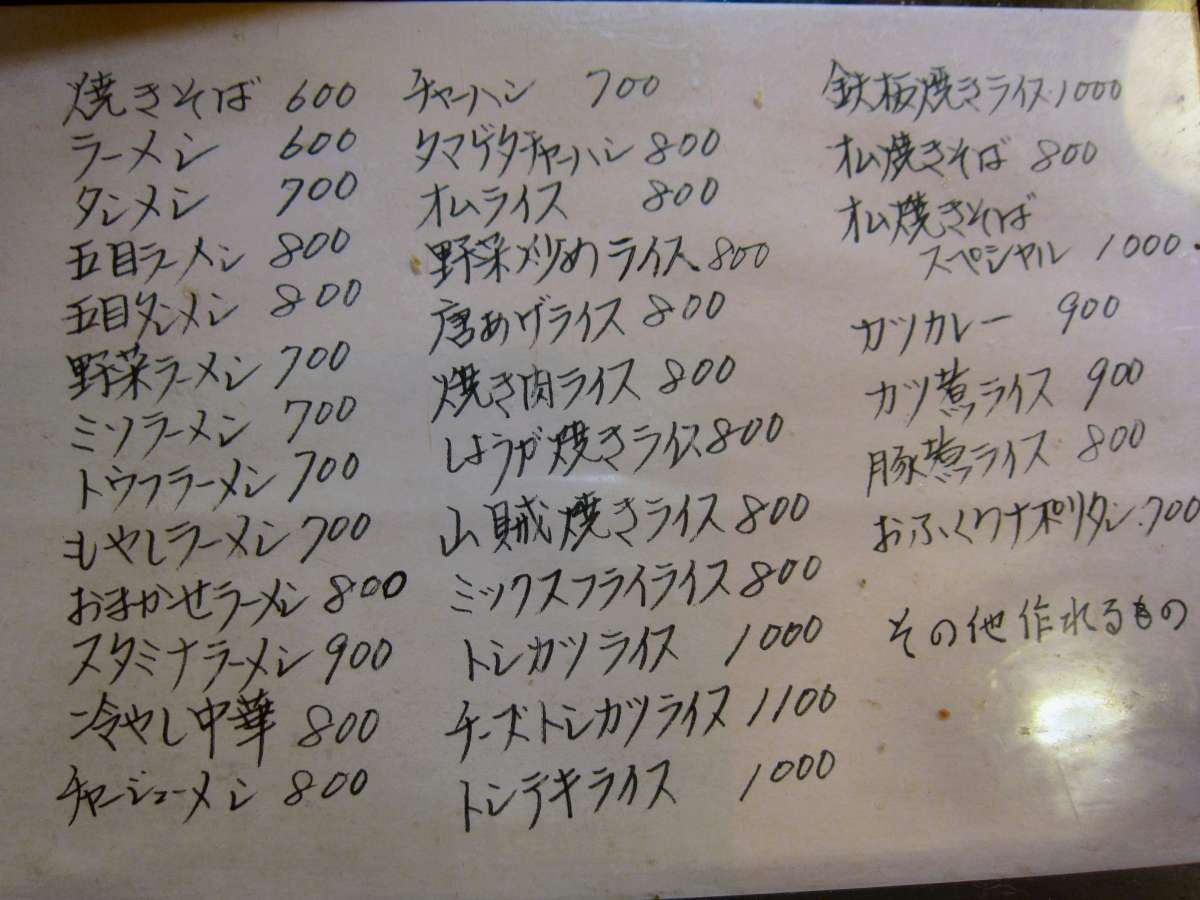 焼きそば 600
ラーメン 600
タンメン 700
五目ラーメン 800
五目タンメン 800
野菜ラーメン 700
ミソラーメン 700
トウフラーメン 700
もやしラーメン 700
おまかせラーメン 800
スタミナラーメン 900
冷やし中華 800
チャーシューメン 800
チャーハン 700
タマゲタチャーハン 800
オムライス 800
野菜炒めライス 800
唐あげライス 800
焼き肉ライス 800
しょうが焼きライス 800
山賊焼きライス 800
ミックスフライライス 800
トンカツライス 1000
チーズトンカツライス 1100
トンテキライス 1000
鉄板焼きライス 1000
オム焼きそば 800
オム焼きそば
スペシャル 1000
カツカレー 900
カツ煮ライス 900
豚煮ライス 800
おふくろナポリタン 700
その他作れるもの